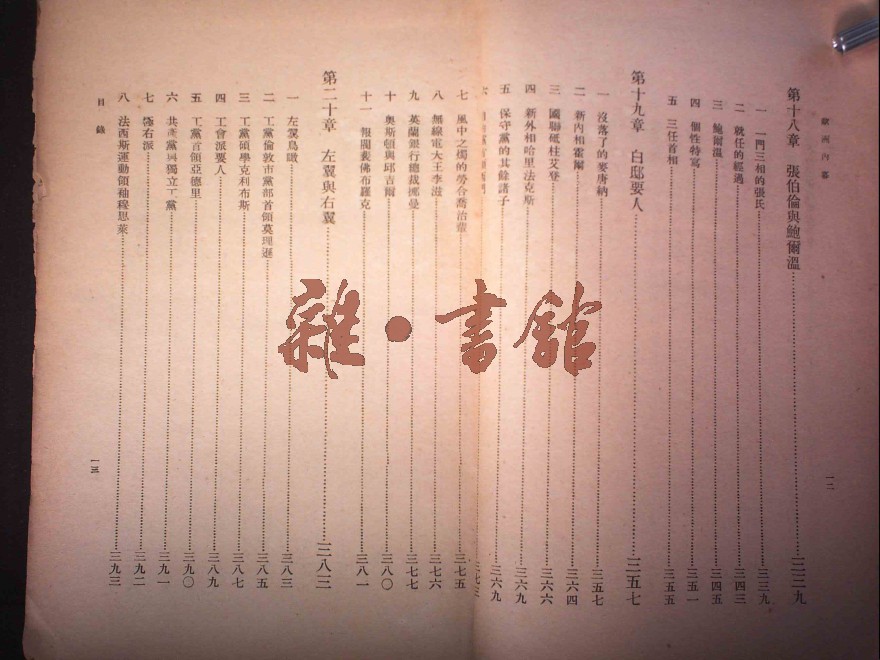 歐洲內幕
第十八章　張伯倫與鮑爾溫……三三九
一　一門三相的張氏……三三九
二　就任的經過……三四三
三　鮑爾溫……三四五
四　個性特寫……三五一
五　三任首相……三五五
第十九章　白邸要人……三五七
一　沒落了的麥唐納……三五七
二　新內相霍爾……三六四
三　國聯砥柱艾登……三六六
四　新外相哈里法克斯……三六九
五　保守黨的其餘諸子……三六九
七　風中之燭的勞合喬治……三七五
八　無線電大王李滋……三七六
九　英蘭銀行總裁挪曼……三七七
十　奧斯頓與邱吉爾……三八〇
十一　報閥裴佛布羅克……三八一
第二十章　左翼與右翼……三八三
一　左翼鳥瞰……三八三
二　工黨倫敦市黨部首領莫理遜……三八五
三　工黨碩學克利布斯……三八七
四　工會派要人……三八九
五　工黨首領亞德里……三九〇
六　共產黨與獨立工黨……三九一
七　極右派……三九二
八　法西斯運動領袖穆思萊……三九三
目錄
一二
一三
雜·書館